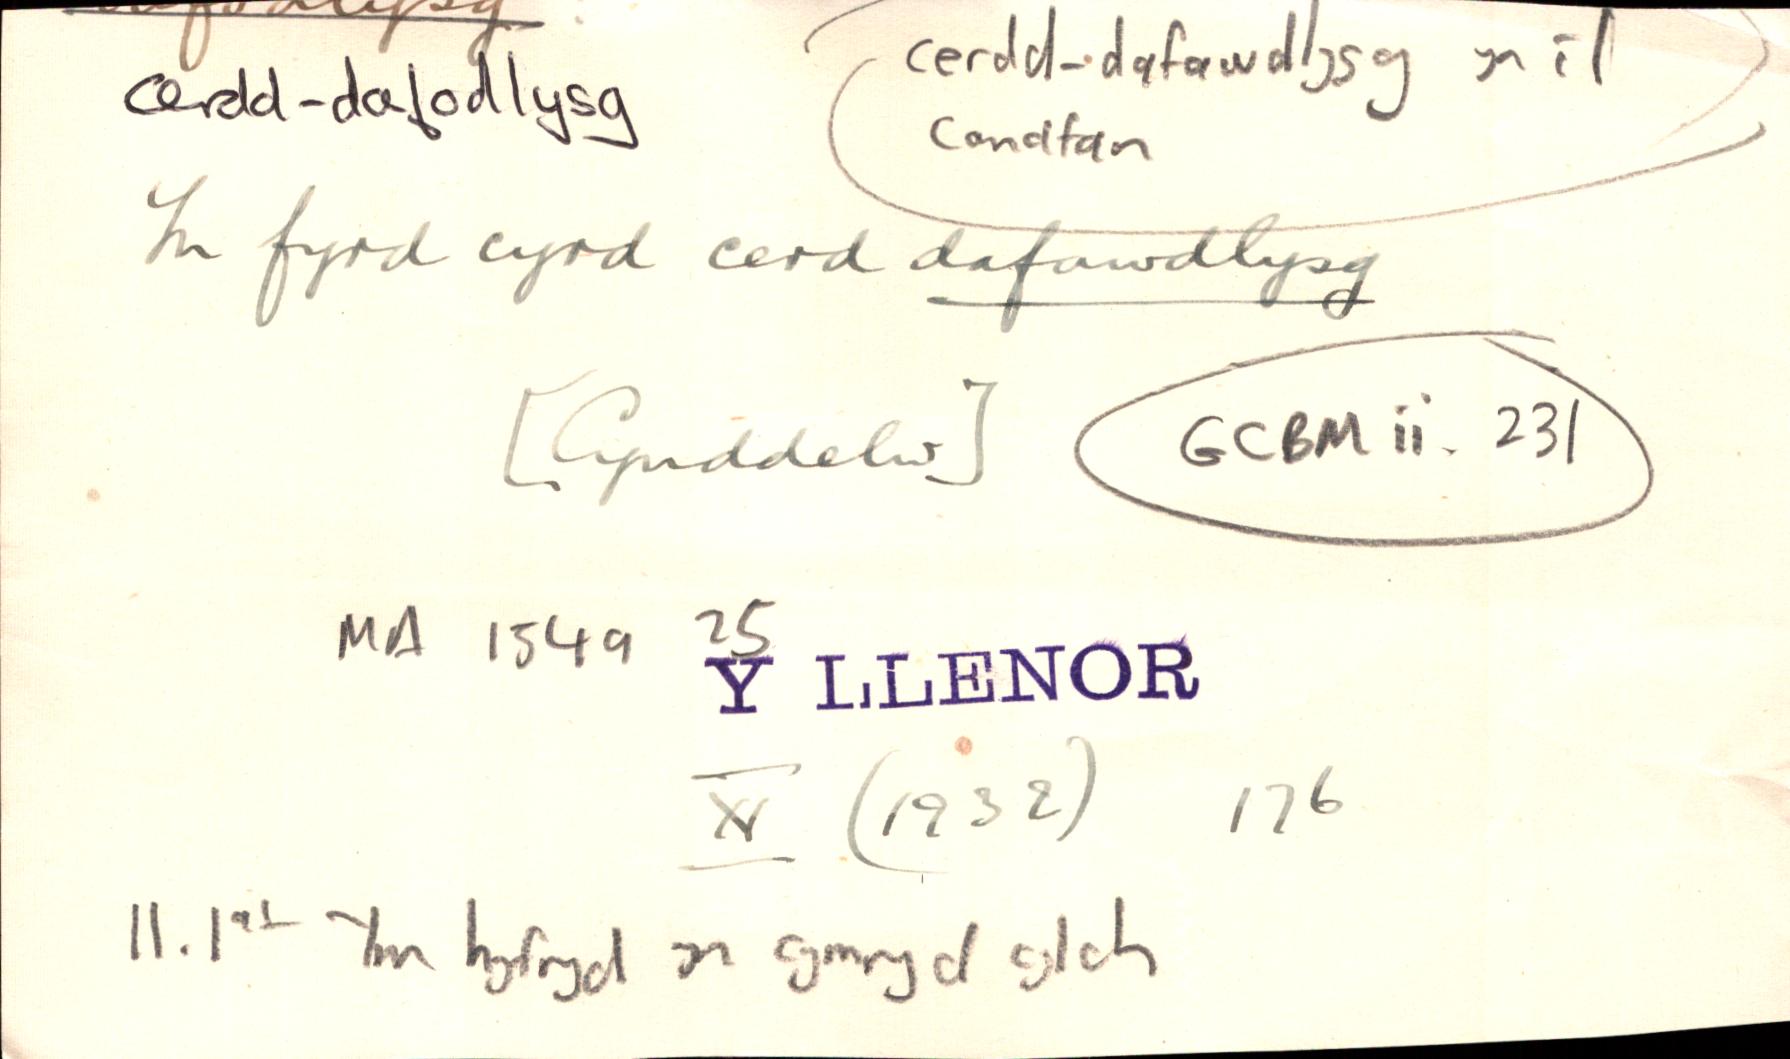 dafodlysg
cerdd-dafodlysg
cerdd-dafawdlysg yn il
Candfan
Ym fyrd cyrd cerd dafawdlysg
[Cynddelw]
GCBM ii. 231
MA 154a 25
Y LLENOR
XI (1932) 176
Ym hyfryd yn cymryd cylch